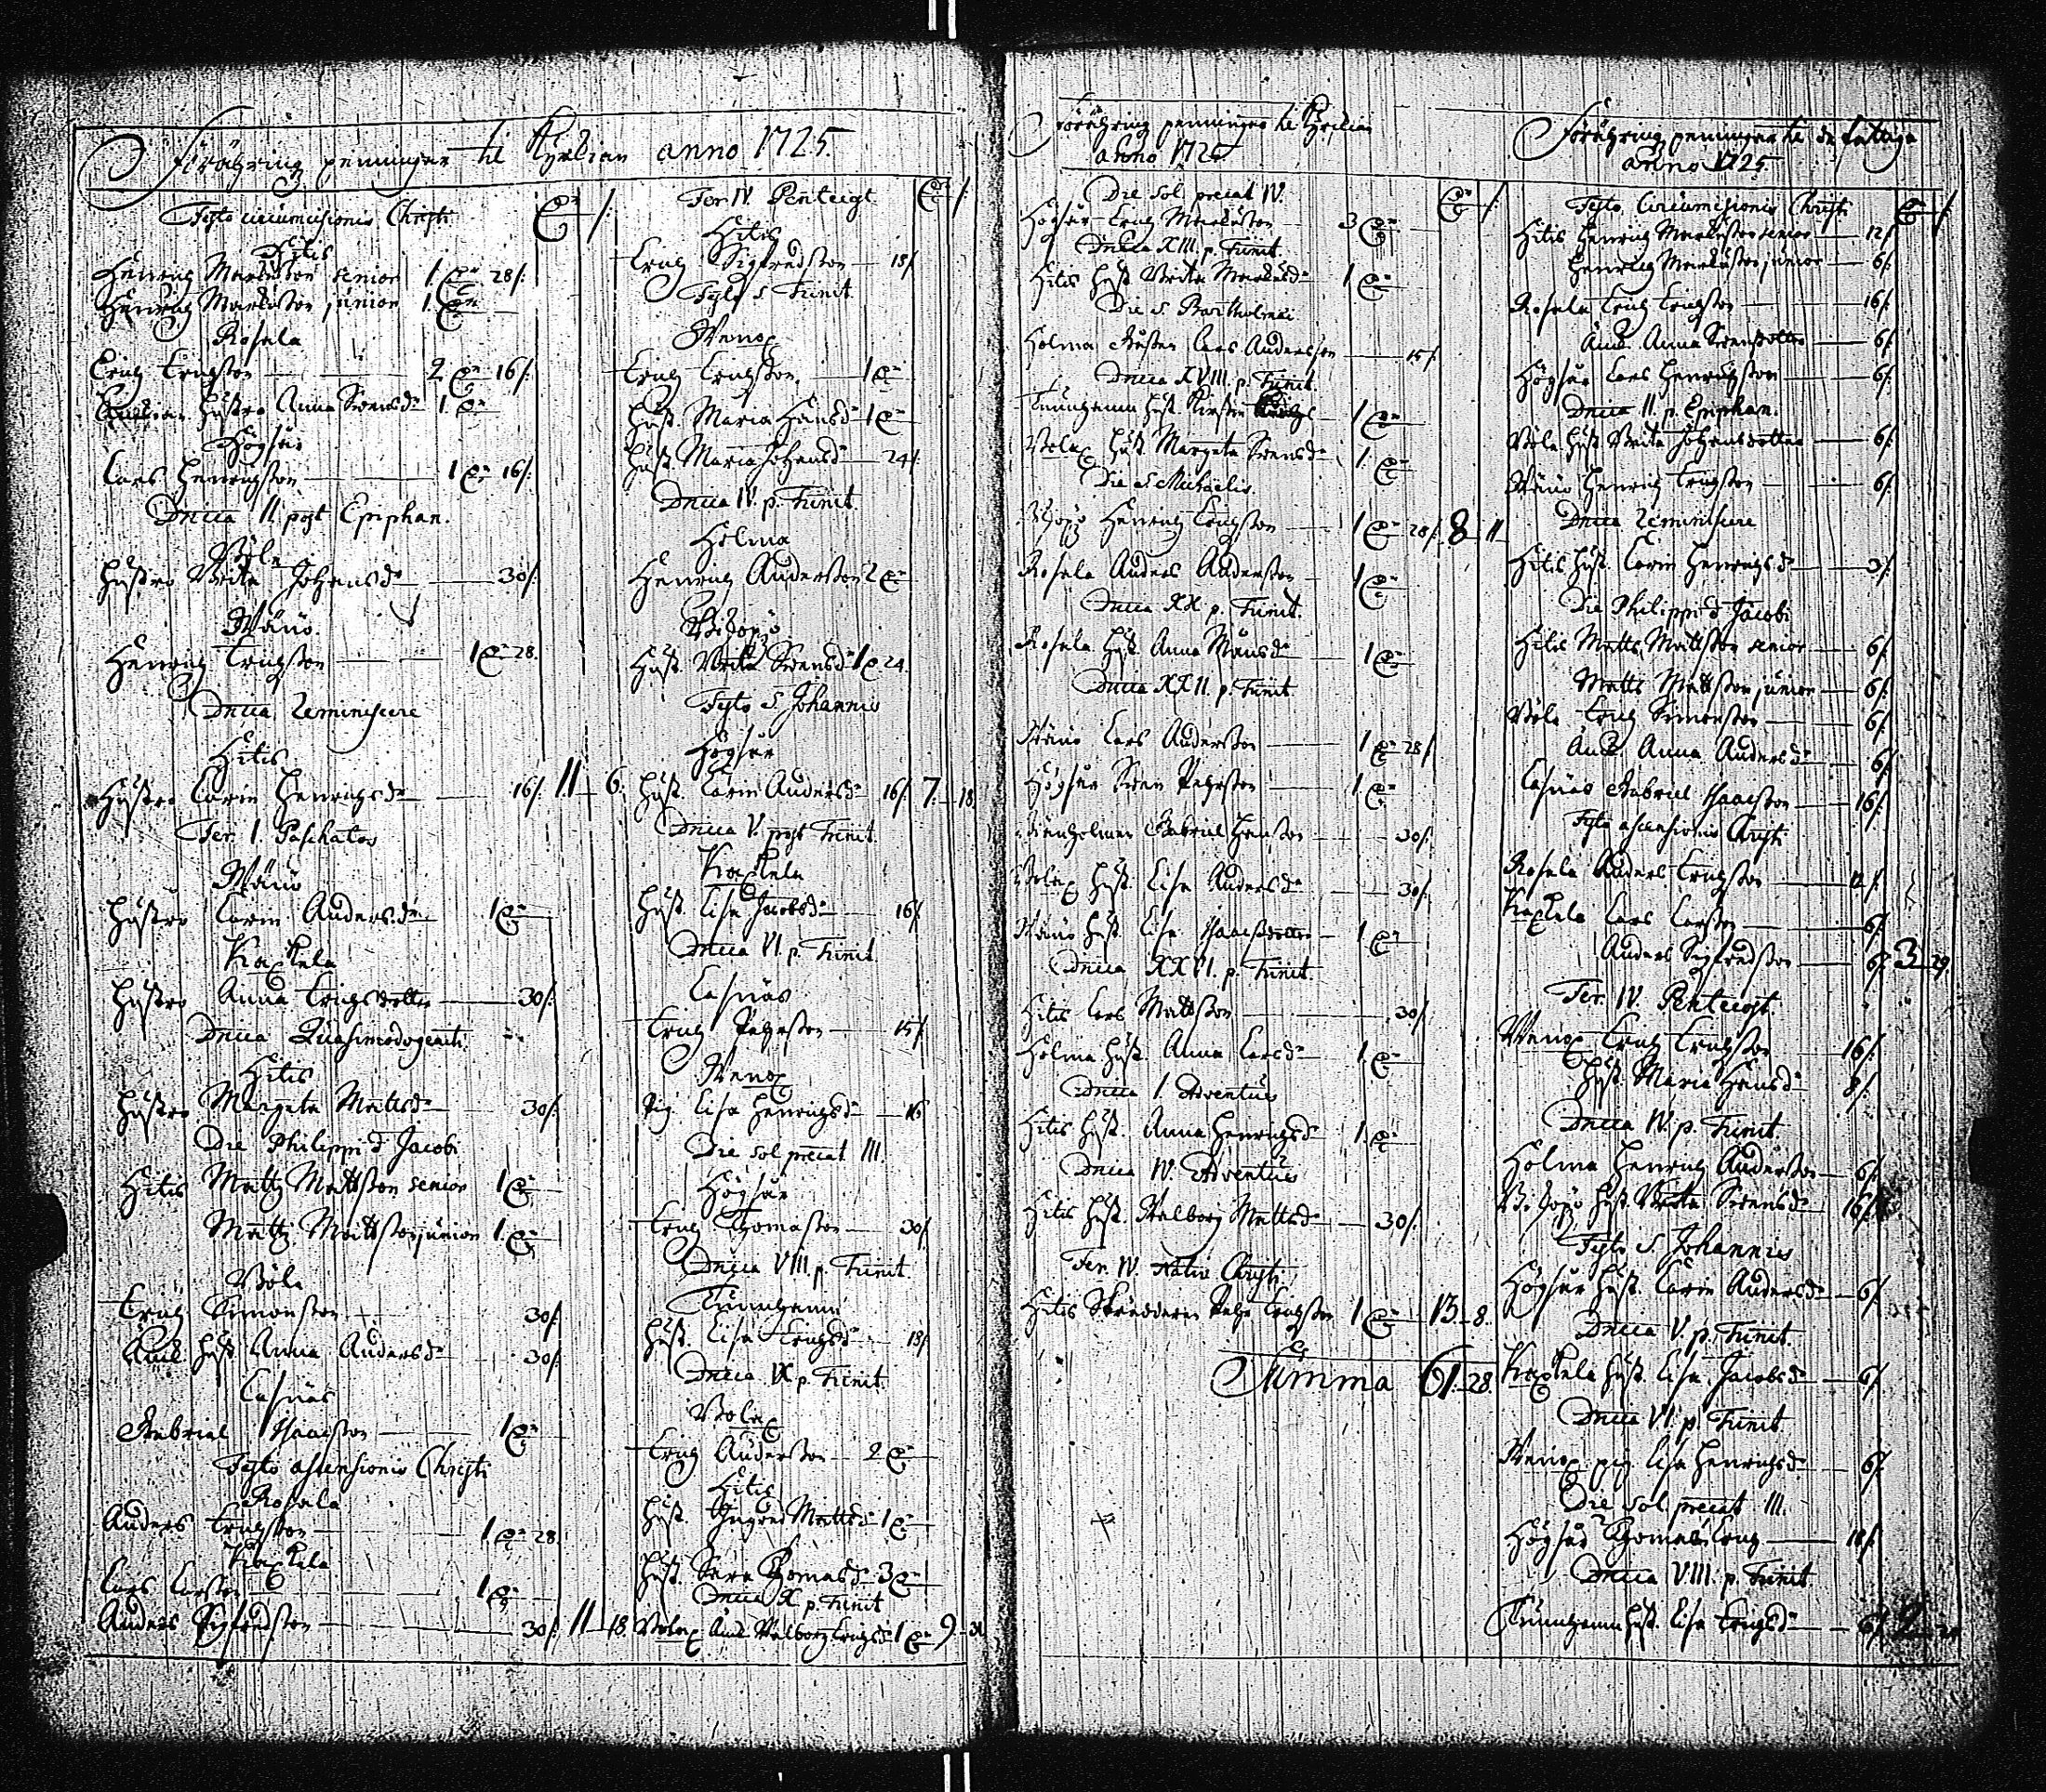 Förähring penningar til Kyrkian anno 1725.
Festo circumcisionis Christi
Hitis
Henrich Markusson senior 1 28/.
Henrich Markusson junior 1
Rosala
Erich Erichsson 2 16/.
hustro Anna Svensdr 1
Högsår
Lars Henrichsson 1 16/.
Dnica II post Epiphan.
Böle
hustro Brita Johansdr 30/.
Wänö
Henrich Erichsson 1 28.
Dnica Reminiscere
Hitis
Hustro Carin Henrichsdr 16/. 11 6.
Fer. 1. Paschatos
Wänö
hustro Carin Andersdr 1
Kaxkela
hustro Anna Erichsdotter 30/.
Dnica Quasimodogeniti
Hitis
hustro Margeta Mattsdr 30/.
Die Philippi & Jacobi
Hitis Matts Mattsson senior 1
Matts Mattsson junior 1
Böle
Erich Simonsson 30/.
hust. Anna Andersdr 30/.
Lasnäs
Gabriel Isaacsson 1
Festo ascensionis Christi
Rosala
Anders Erichsson 1 28.
Kaxkela
Lars Larsson 1
Anders Sigfredsson 30/. 11 18.
Fer IV. Pentecost.
Hitis
Erich Sigfredsson 18/.
Festo S. Trinit.
Wänox
Erich Erichsson 1
Hust. Maria Hansdr 1
Hust. Maria Johansdr 24/.
Dnica IV. p. Trinit.
Holma
Henrich Andersson 2
Bisopö
Hust. Brita Svensdr 1 24.
Festo S. Johannis
Högsår
Hust. Carin Andersdr 16/. 7. 18.
Dnica V. post Trinit.
Kaxkela
Hust. Lisa Jacobsdr 16/
Dnica VI. p. Trinit.
Lasnäs
Erich Pehrsson 15/
Wänox
Pig. Lisa Henrichsdr 16
Die sol precat III.
Högsår
Erich Thomasson 30/.
Dnica VIII. p. Trinit.
Tunnhamn
Hust. Lisa Erichsdr 18/
Dnica IX p. Trinit.
Bolax
Erich Andersson 2
Hitis
Hust. Ingred Mattsdr 1
Hust. Sara Thomasdr 3
Dnica X p. Trinit
Bolax Walborg Erichsdr 1 9
Förähring penningar til Kyrkian
anno 1725
Die Sol precat IV.
Högsår Erich Markusson 3
Dnica XIII. p. Trinit.
Hitis Hust Brita Markusdr 1
Die S. Bartholmei
Holma Lars Andersson 15/.
Dnica XVIII. p. Trinit.
Tunnhamn hust. Kirstin 1
Bolax Hust. Margeta Svensdr 1
Die S. Michaelis.
Henrich Erichsson 1 28/. 8 11
Rosala Anders Andersson 1
Dnica XX p. Trinit.
Rosala Hust. Anna Månsdr 1
Dnica XXII. p. Trinit
Wänö Lars Andersson 1 28/
Högsår Sven Pehrsson 1
Gabriel Hansson 30/.
Bolax Hust. Lisa Andersdr 30/.
Wänö Hust. Lisa Isaacsdotter 1
Dnica XXVI. p. Trinit.
Hitis Lars Mattsson 30/
Holma Hust. Anna Larsdr 1
Dnica I. Adventus
Hitis Hust. Anna Henrichsdr 1
Dnica IV. Adventus
Hitis Hust. Walborg Mattsdr 30/.
Fer. IV. Nativ Christi
Hitis Skräddaren Pehr Erichsson 1 13 8.
Summa 61 28.
Förähring penningar til de fattiga
anno 1725.
Festo Circumcisionis Christi
Hitis Henrich Markusson senior 12/
Henrich Markusson junior 6/.
Rosala Erich Erichsson 16/.
Anna Svensdotter 6/.
Högsår Lars Henrichsson 6/.
Dnica II. p. Epiphan.
Böle Hust. Brita Johansdotter 6/.
Wänö Henrich Erichsson 6/.
Dnica Reminiscere
Hitis Hust. Carin Henrichsdr 3/.
Die Philippi & Jacobi
Hitis Matts Mattsson senior 6/.
Matts Mattsson junior 6/.
Böle Erich Simonsson 6/.
Anna Andersdr 6/.
Lasnäs Gabriel Isaacsson 16/.
Festo ascensionis Christi
Rosala Anders Erichsson 12/.
Kaxkela Lars Larsson 6/.
Anders Sigfredsson 6/. 3 29.
Fer. IV. Pentecost.
Wänox Erich Erichsson 16/.
Hust. Maria Hansdr 8/.
Dnica IV. p. Trinit.
Holma Henrich Andersson 6/.
Bisopö Hust. Brita Svensdr 16/.
Festo S. Johannis
Högsår Hust. Carin Andersdr 6/
Dnica V. p. Trinit.
Kaxkela Hust. Lisa Jacobsdr 6/
Dnica VI. p. Trinit.
Wänox pig Lisa Henrichsdr 6/.
Die Sol. precat III.
Högsår Thomas Erich 18/.
Dnica VIII. p. Trinit
Tunnhamn Hust. Lisa Erichsdr 6/. 2